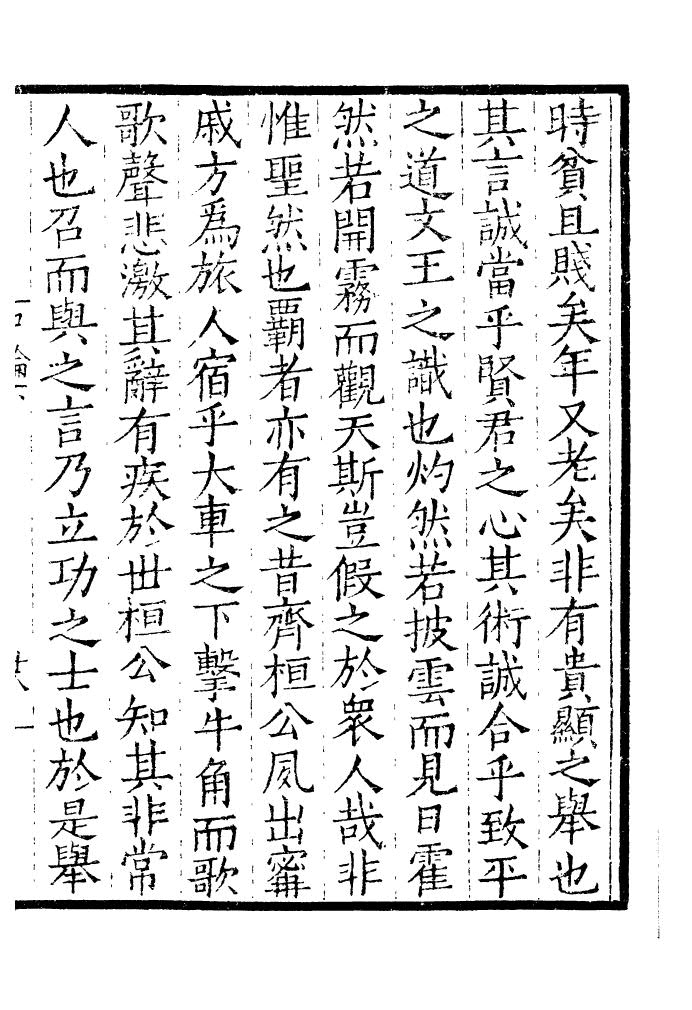 時貧且賤矣年又老矣非有貴顯之舉也
其言誠當乎賢君之心其術誠合乎致平
之道文王之識也灼然若披雲而見日霍
然若開霧而觀天斯豈假之於衆人哉非
惟聖然也霸者亦有之昔齊桓公夙出甯
戚方爲旅人宿乎大車之下擊牛角而歌
歌聲悲激其辭有疾於世桓公知其非常
人也召而與之言乃立功之士也於是舉